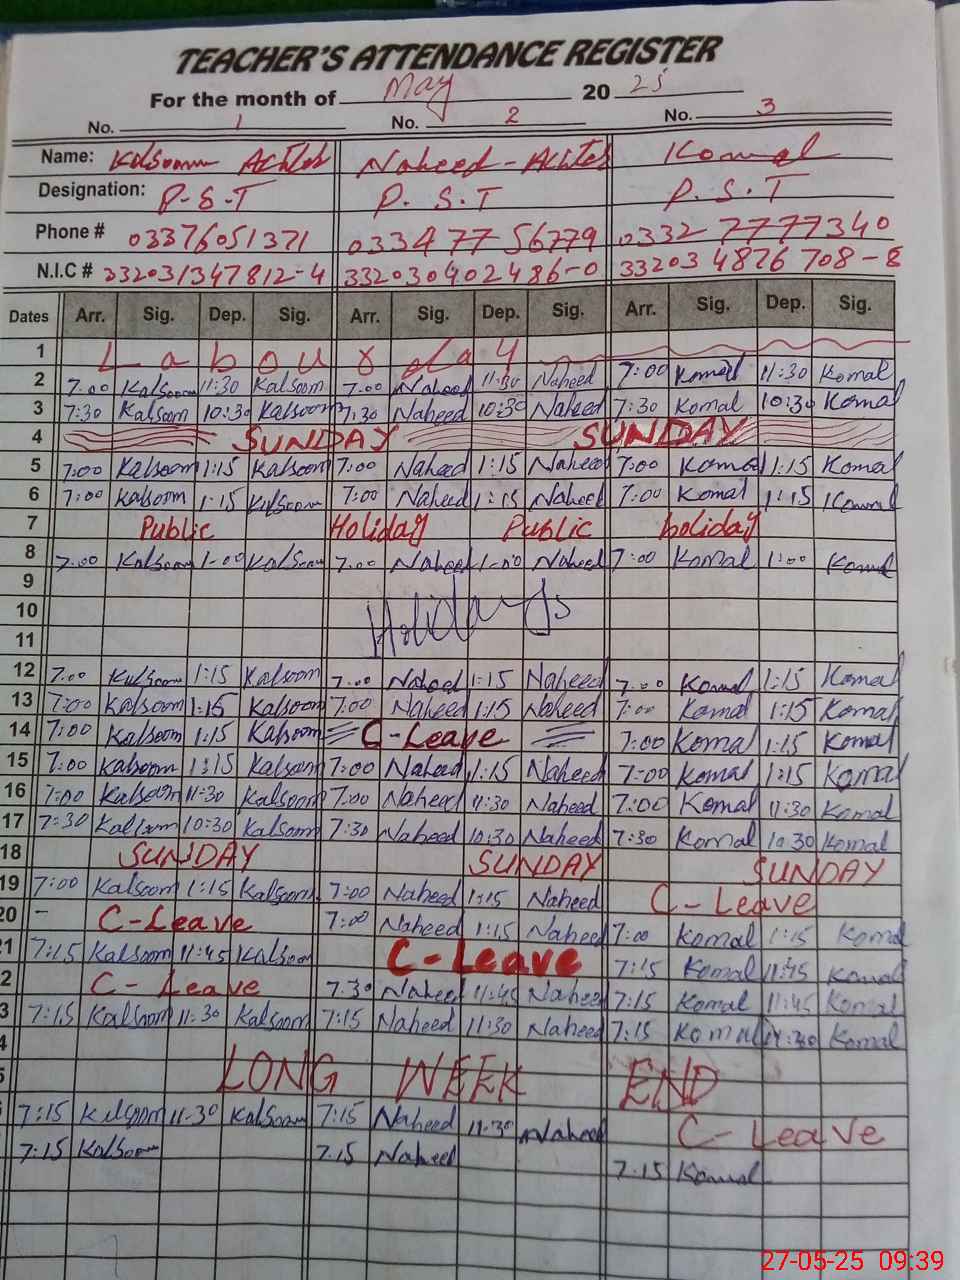 TEACHER'S ATTENDANCE REGISTER
For the month of May 20 25
No. 1 No. 2 No. 3
Name: Kalsoom Naheed - Komal
Designation: P.S.T P.S.T P.S.T
Phone # 03376051371 03347756779 03327777340
N.I.C # 332031347812-4 332030402486-0 332034876708-8
Dates Arr. Sig. Dep. Sig. Arr. Sig. Dep. Sig. Arr. Sig. Dep. Sig.
1 Labour day
2 7:00 Kalsoom 11:30 Kalsoom 7:00 Naheed 11:30 Naheed 7:00 Komal 11:30 Komal
3 7:30 Kalsoom 10:30 Kalsoom 7:30 Naheed 10:30 Naheed 7:30 Komal 10:30 Komal
4 SUNDAY SUNDAY
5 7:00 Kalsoom 1:15 Kalsoom 7:00 Naheed 1:15 Naheed 7:00 Komal 1:15 Komal
6 7:00 Kalsoom 1:15 Kalsoom 7:00 Naheed 1:15 Naheed 7:00 Komal 1:15 Komal
7 Public Holiday Public holiday
8 7:00 Kalsoom 1-00 Kalsoom 7:00 Naheed 1-00 Naheed 7:00 Komal 1:00 Komal
9
10 Holidays
11
12 7:00 Kalsoom 1:15 Kalsoom 7:00 Naheed 1:15 Naheed 7:00 Komal 1:15 Komal
13 7:00 Kalsoom 1:15 Kalsoom 7:00 Naheed 1:15 Naheed 7:00 Komal 1:15 Komal
14 7:00 Kalsoom 1:15 Kalsoom C-Leave 7:00 Komal 1:15 Komal
15 7:00 Kalsoom 1:15 Kalsoom 7:00 Naheed 1:15 Naheed 7:00 Komal 1:15 Komal
16 7:00 Kalsoom 11:30 Kalsoom 7:00 Naheed 11:30 Naheed 7:00 Komal 11:30 Komal
17 7:30 Kalsoom 10:30 Kalsoom 7:30 Naheed 10:30 Naheed 7:30 Komal 10:30 Komal
18 SUNDAY SUNDAY SUNDAY
19 7:00 Kalsoom 1:15 Kalsoom 7:00 Naheed 1:15 Naheed C-Leave
20 - C-Leave 7:00 Naheed 1:15 Naheed 7:00 Komal 1:15 Komal
21 7:15 Kalsoom 11:45 Kalsoom C-Leave 7:15 Komal 11:45 Komal
2 C-Leave 7:30 Naheed 11:45 Naheed 7:15 Komal 11:45 Komal
3 7:15 Kalsoom 11:30 Kalsoom 7:15 Naheed 11:30 Naheed 7:15 Komal 11:30 Komal
4
5 LONG WEEK END
7:15 Kalsoom 11-30 Kalsoom 7:15 Naheed 11-30 Naheed C-Leave
7:15 Kalsoom 7:15 Naheed 7:15 Komal
27-05-25 09:39